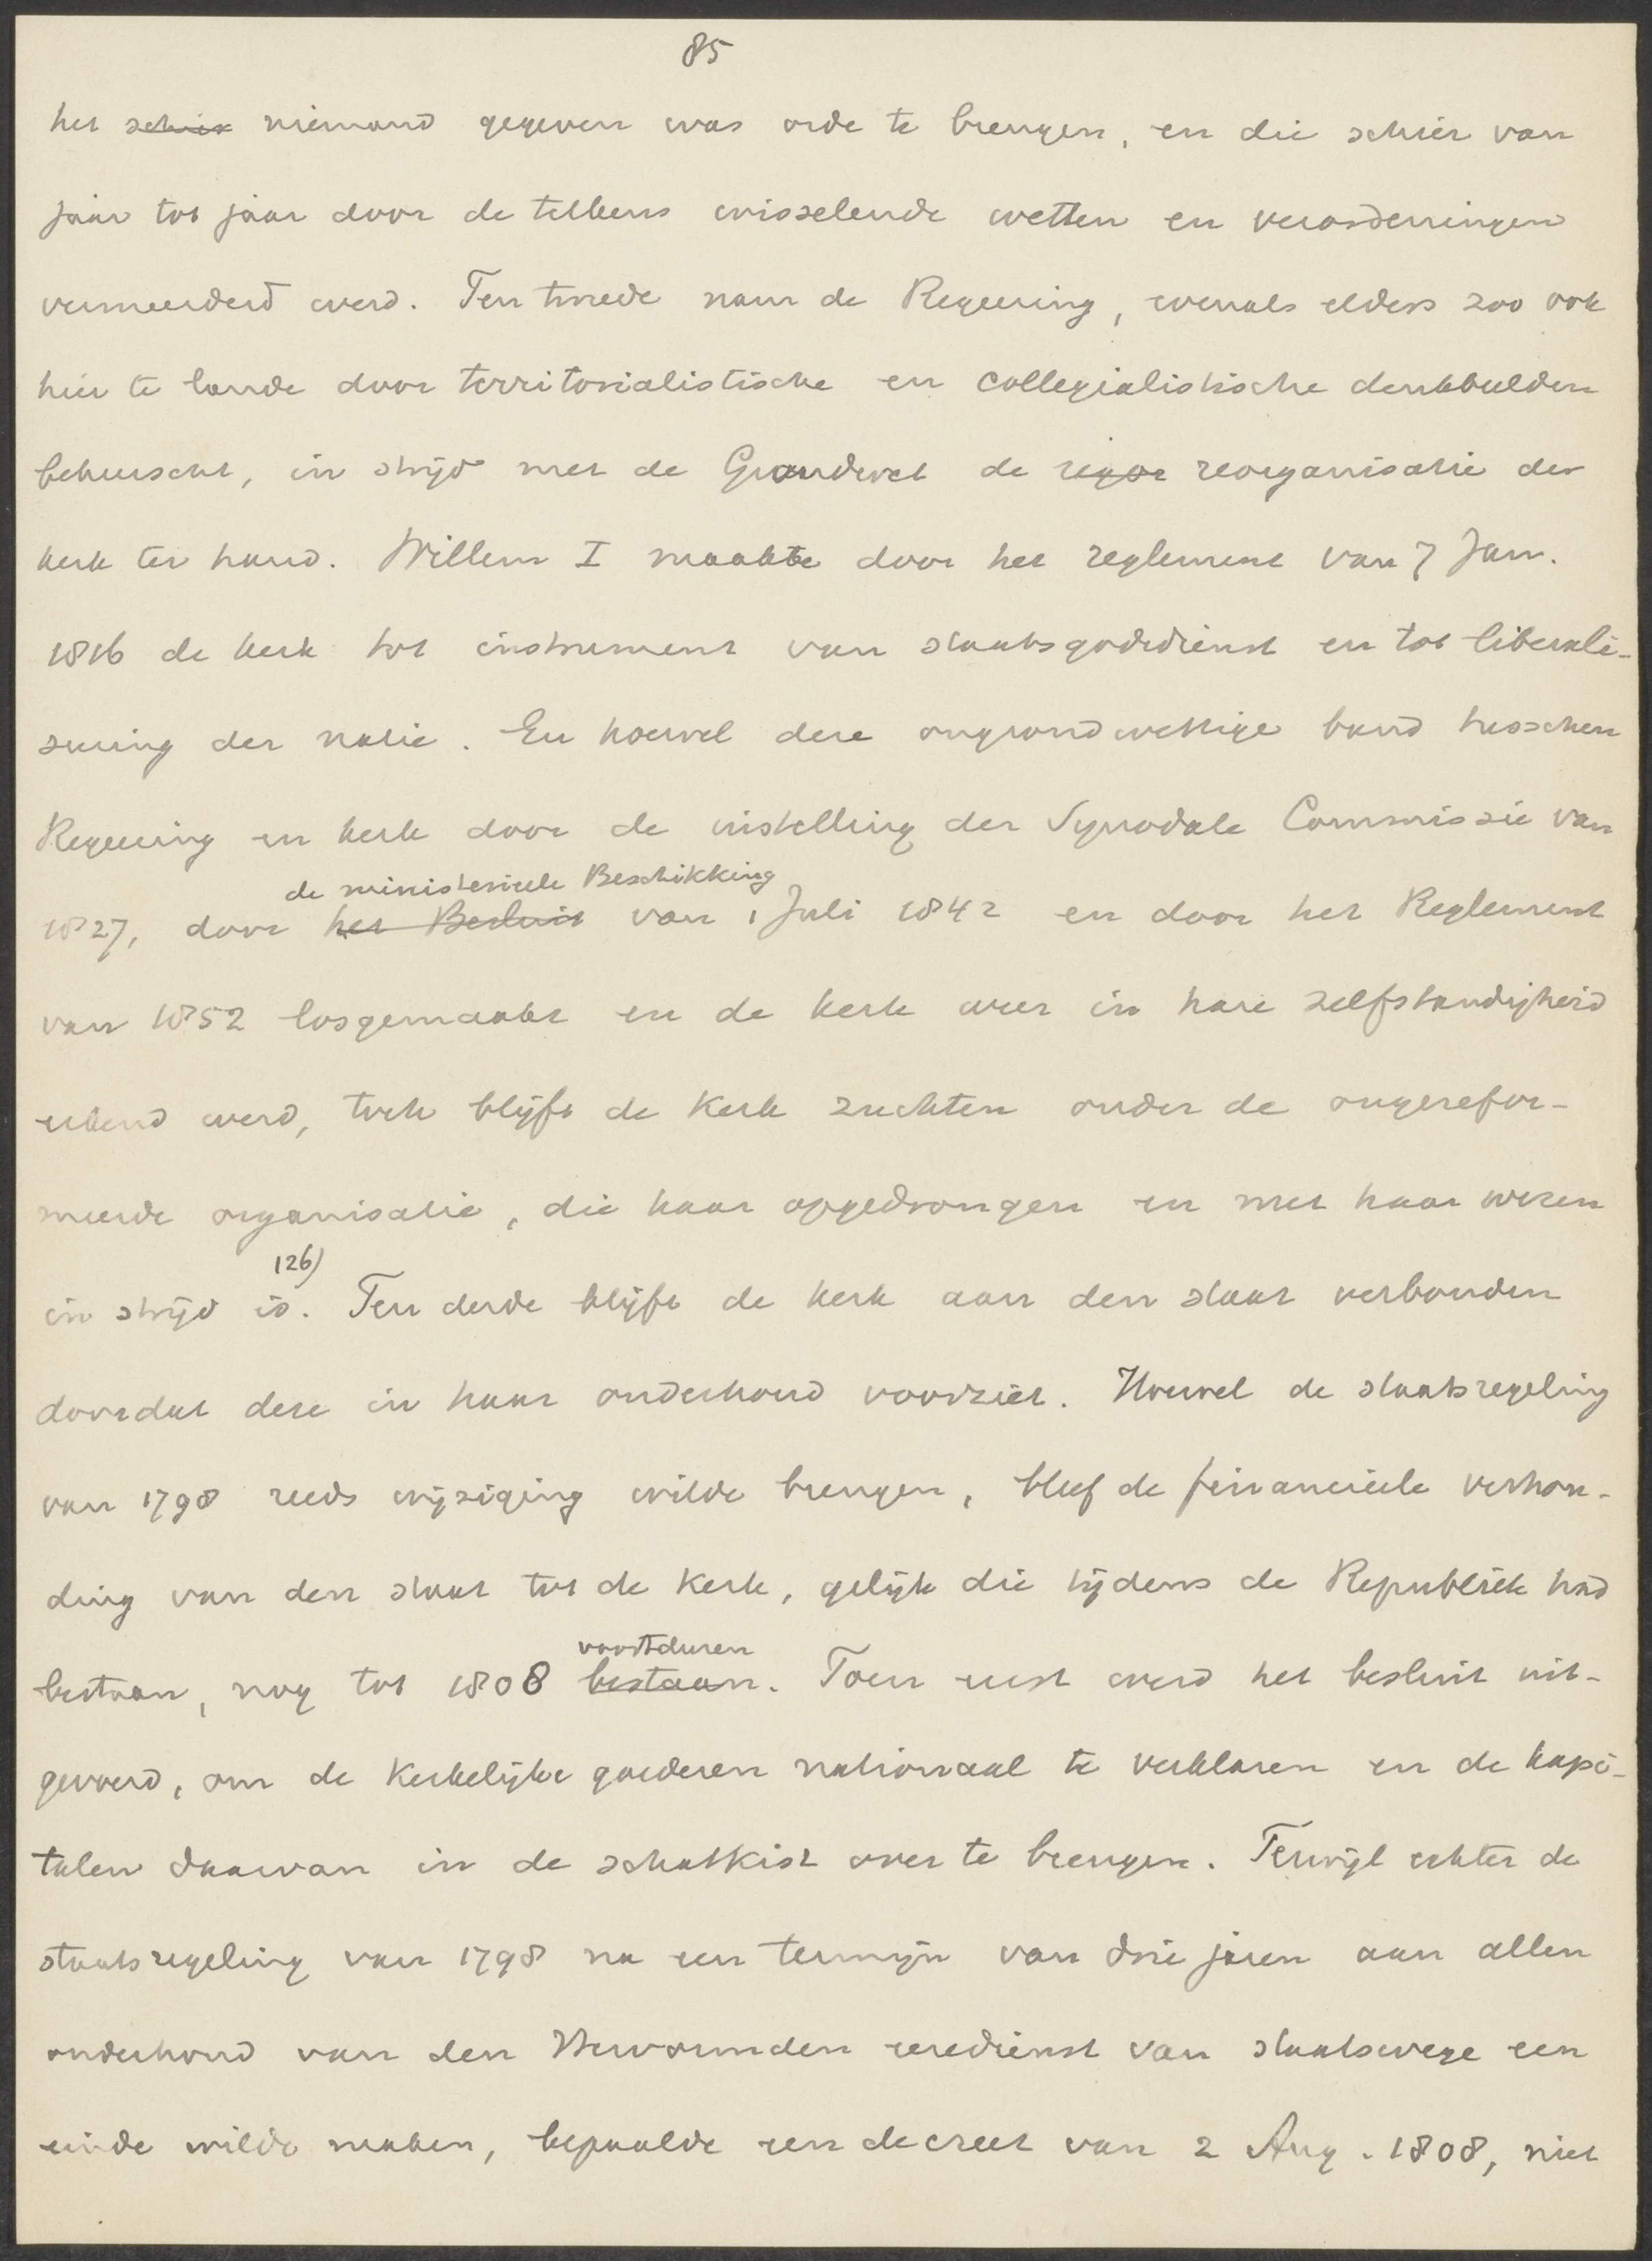 85
het schier niemand gegeven was orde te brengen, en die schier van
jaar tot jaar door de telkens wisselende wetten en verordeningen
vermeerderd werd. Ten tweede nam de Regeering, evenals elders zoo ook
hier te lande door territorialistische en collegialistische denkbeelden
beheerscht, in strijd met de Grondwet de reorganisatie der
kerk ter hand. Willem I maakte door het reglement van 7 Jan.
1816 de kerk tot instrument van staatsgodsdienst en tot liberali-
seering der natie. En hoewel deze ongrondwettige band tusschen
Regeering en kerk door de instelling der Synodale Commissie van
de ministerieele Beschikking
1827, door het Besluit van 1 Juli 1842 en door het Reglement
van 1852 losgemaakt en de kerk weer in hare zelfstandigheid
erkend werd, toch blijft de Kerk zuchten onder de ongerefor-
meerde organisatie, die haar opgedrongen en met haar wezen
126)
in strijd is. Ten derde blijft de kerk aan den staat verbonden
doordat deze in haar onderhoud voorziet. Hoewel de staatsregeling
van 1798 reeds wijziging wilde brengen, bleef de financieele verhou-
ding van den staat tot de Kerk, gelijk die tijdens de Republiek had
voortduren
bestaan, nog tot 1808 bestaan. Toen eerst werd het besluit uit-
gevoerd, om de Kerkelijke goederen nationaal te verklaren en de kapi-
talen daarvan in de schatkist over te brengen. Terwijl echter de
staatsregeling van 1798 na een termijn van drie jaren aan allen
onderhoud van den Hervormden eeredienst van staatswege een
einde wilde maken, bepaalde een decreet van 2 Aug. 1808, niet